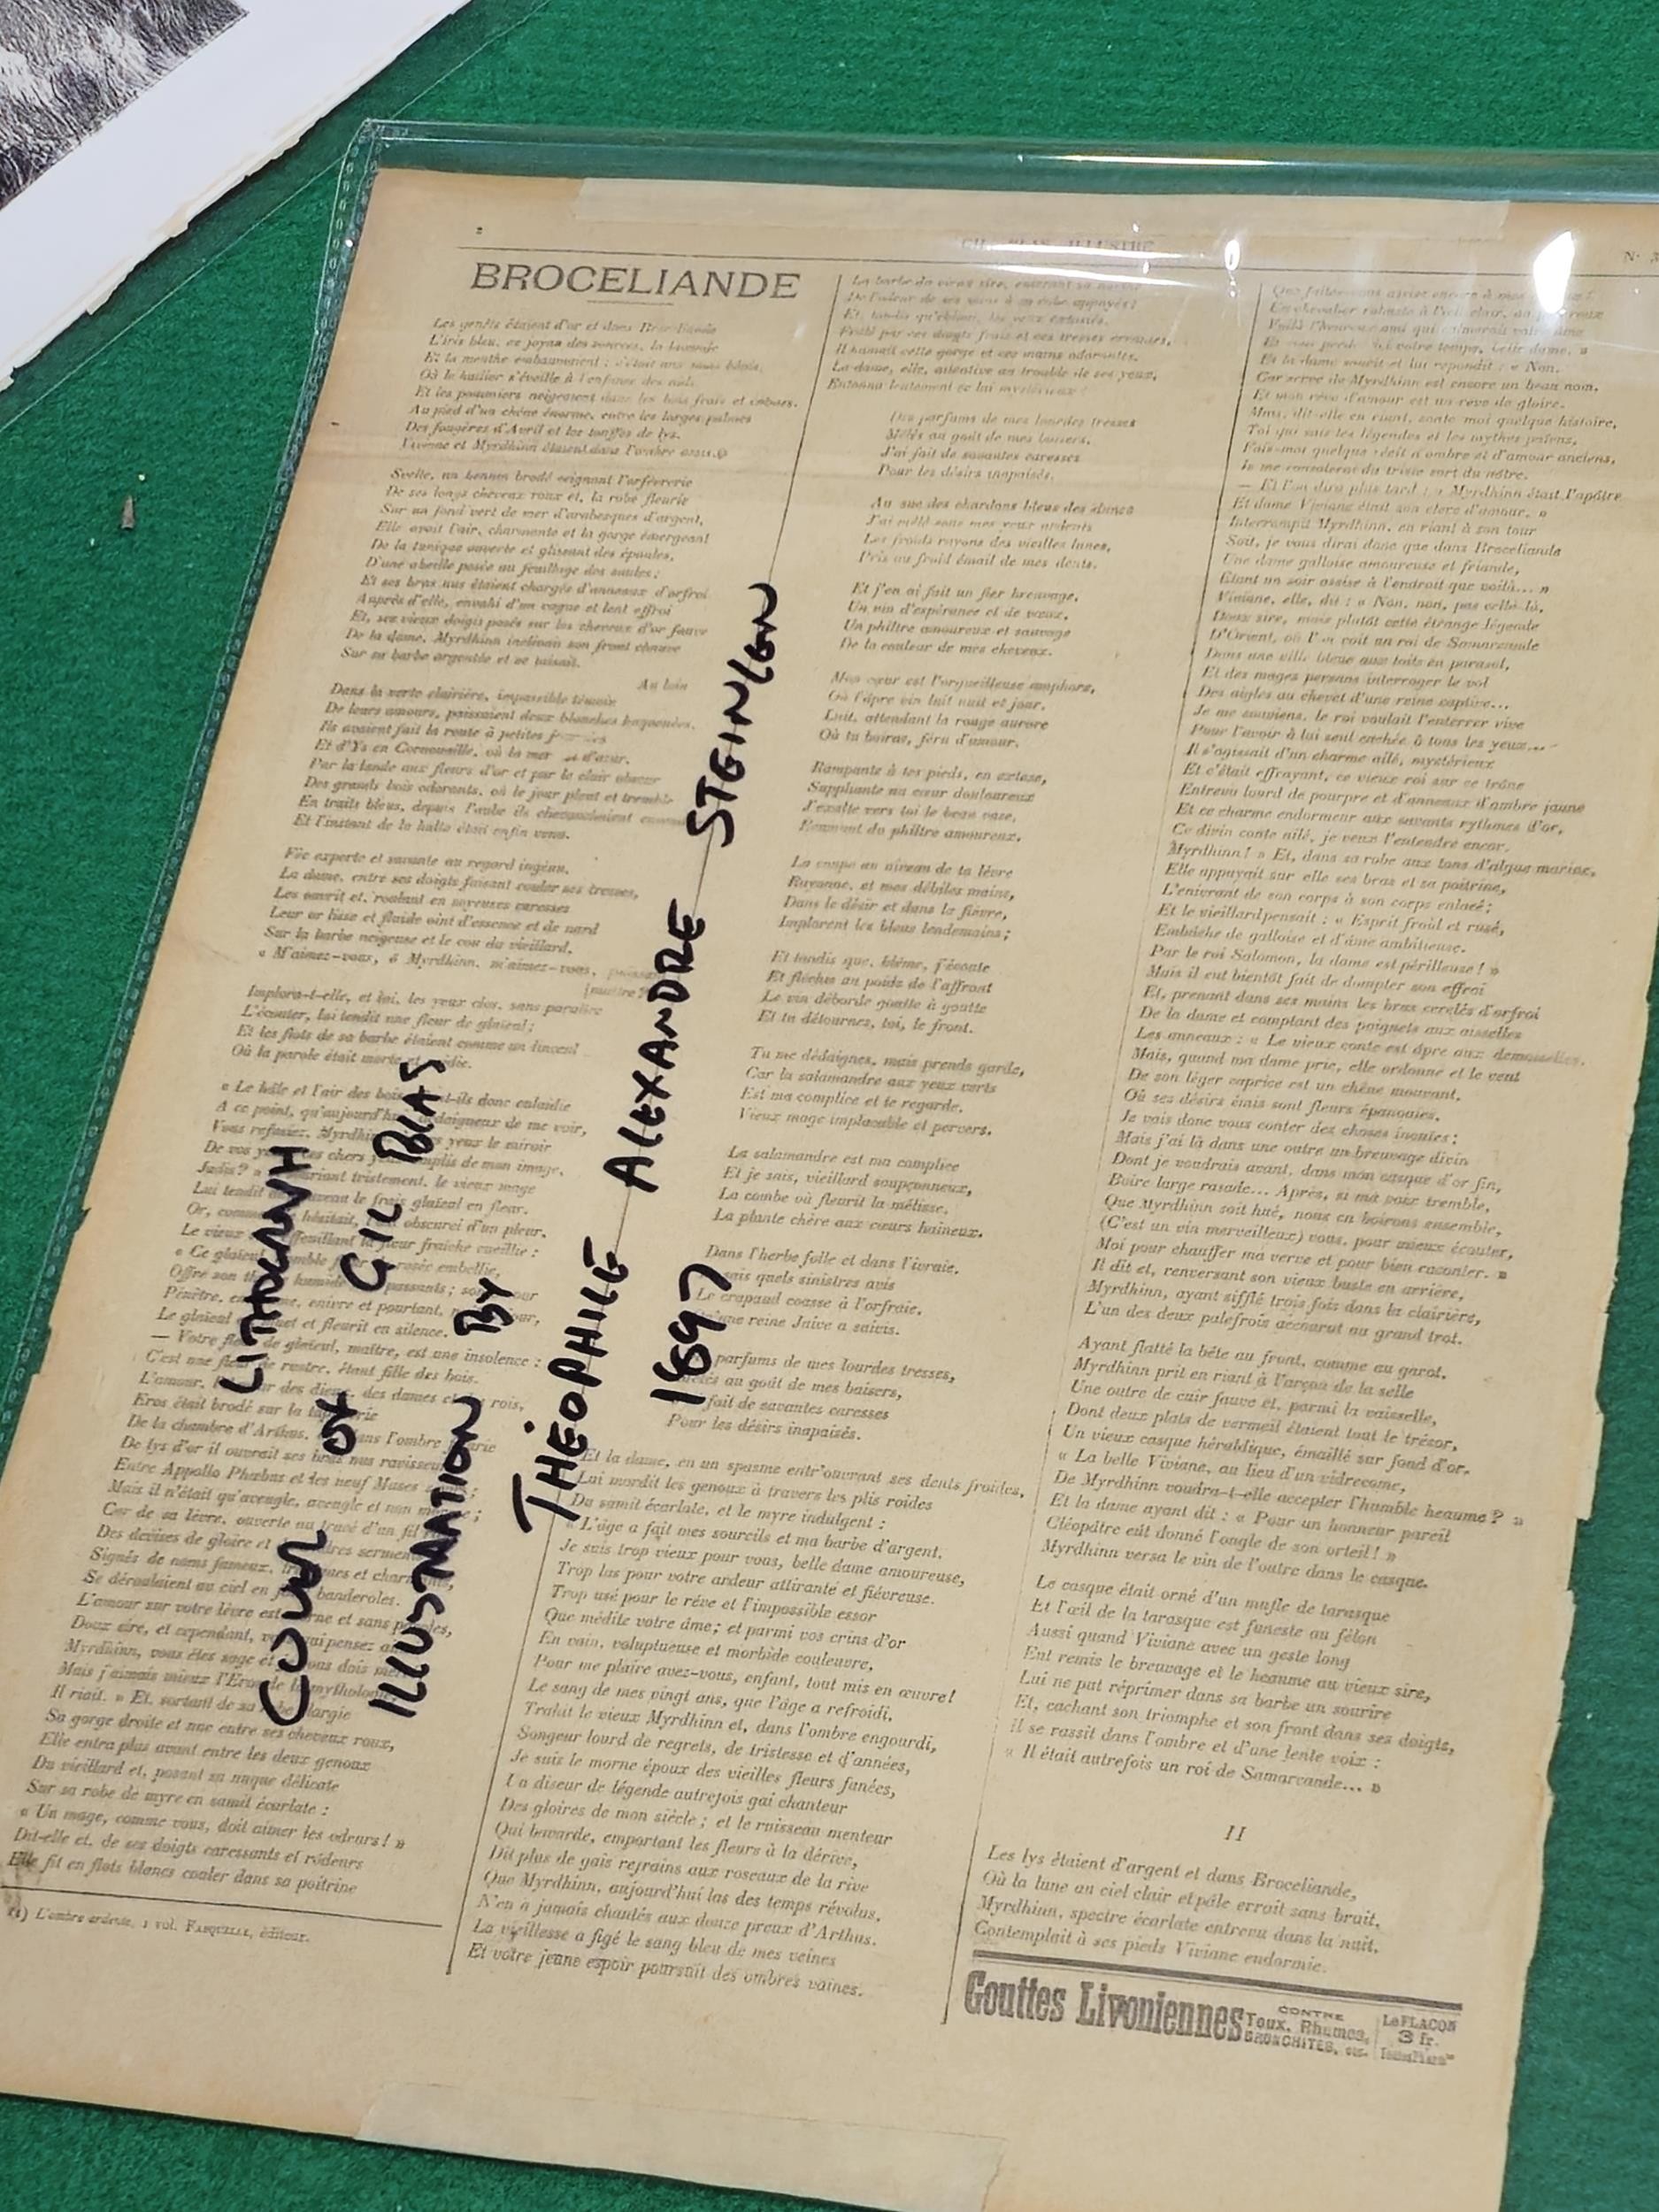 2
GIL BLAS ILLUSTRÉ
N°
BROCELIANDE
Les genêts étaient d'or et dans Broceliande
L'iris bleu, ce joyau des sources, la
Et la menthe embaumaient ; c'était
Où le hallier s'éveille à l'enfance des nids,
Et les pommiers neigeaient dans les bois frais et
Au pied d'un chêne énorme, entre les larges palmes
Des fougères d'Avril et les touffes de lys,
et Myrdhinn étaient dans l'ombre assis.
Svelte, un hennin brodé ceignant l'orfèvrerie
De ses longs cheveux roux et, la robe fleurie
Sur un fond vert de mer d'arabesques d'argent,
Elle avait l'air, charmante et la gorge émergeant
De la tunique ouverte et glissant des épaules,
D'une abeille posée au feuillage des saules ;
Et ses bras nus étaient chargés d'anneaux d'orfroi.
Auprès d'elle, envahi d'un vague et lent effroi
Et, ses vieux doigts posés sur les cheveux d'or fauve
De la dame, Myrdhinn inclinait son front chauve
Sur sa barbe argentée et se taisait.
Au loin
Dans la verte clairière, impassible témoin
De leurs amours, paissaient deux blanches haquenées.
Ils avaient fait la route à petites
Et d'Ys en Cornouaille, où la mer d'azur,
Par la lande aux fleurs d'or et par le clair obscur
Des grands bois odorants, où le jour pleut et tremble
En traits bleus, depuis l'aube ils chevauchaient
Et l'instant de la halte était enfin venu.
Fée experte et savante au regard ingénu,
La dame, entre ses doigts faisant couler ses tresses,
Les ouvrit et, roulant en soyeuses caresses
Leur or lisse et fluide oint d'essence et de nard
Sur la barbe neigeuse et le cou du vieillard,
« M'aimez-vous, ô Myrdhinn, m'aimez-vous,
Implora-t-elle, et lui, les yeux clos, sans paraître
L'écouter, lui tendit une fleur de glaïeul ;
Et les flots de sa barbe étaient comme un linceul
Où la parole était morte
« Le hâle et l'air des bois donc enlaidie
A ce point, qu'aujourd'hui dédaigneux de me voir,
Vous refusiez, Myrdhinn yeux le miroir
De vos chers emplis de mon image,
Jadis ? » tristement, le vieux mage
Lui tendit le frais glaïeul en fleur.
Or, comme hésitait, obscurci d'un pleur,
Le vieux effeuillant la fleur fraîche cueillie :
« Ce glaïeul embellie,
Offre son humide passants ;
Pénètre, enivre et pourtant,
Le glaïeul et fleurit en silence.
— Votre de glaïeul, maître, est une insolence :
C'est une fleur de rustre, étant fille des bois.
L'amour, des dieux, des dames rois,
Eros était brodé sur la
De la chambre d'Arthus. l'ombre
De lys d'or il ouvrait ses nus
Entre Appollo Phœbus et les neuf Muses
Mais il n'était qu'aveugle, aveugle et non
Car de sa lèvre, ouverte au tracé d'un fil
Des devises de gloire et
Signés de noms fameux,
Se déroulaient au ciel en banderoles.
L'amour sur votre lèvre est et sans
Doux sire, et cependant,
Myrdhinn, vous êtes sage et dois
Mais j'aimais mieux l'Eros de la mythologie
Il riait. » Et, sortant de sa élargie
Sa gorge droite et nue entre ses cheveux roux,
Elle entra plus avant entre les deux genoux
Du vieillard et, posant sa nuque délicate
Sur sa robe de myre en samit écarlate :
« Un mage, comme vous, doit aimer les odeurs ! »
Dit-elle et, de ses doigts caressants et rôdeurs
Elle fit en flots blancs couler dans sa poitrine
(1) L'ombre ardente, 1 vol. FASQUELLE, éditeur.
La barbe du vieux sire,
De l'odeur de ses
Et, tandis qu', les yeux extasiés,
Frôlé par ces doigts frais et ces tresses errantes,
Il humait cette gorge et ces mains odorantes,
La dame, elle, attentive au trouble de ses yeux,
Entonna lentement ce lai mystérieux :
Des parfums de mes lourdes tresses
Mêlés au goût de mes baisers,
J'ai fait de savantes caresses
Pour les désirs inapaisés.
Au suc des chardons bleus des
J'ai mêlé sous mes yeux ardents
Les froids rayons des vieilles lunes,
Pris au froid émail de mes dents.
Et j'en ai fait un fier breuvage,
Un vin d'espérance et de vœux,
Un philtre amoureux et sauvage
De la couleur de mes cheveux.
Mon cœur est l'orgueilleuse amphore,
Où l'âpre vin luit nuit et jour,
Luit, attendant la rouge aurore
Où tu boiras, féru d'amour.
Rampante à tes pieds, en extase,
Suppliante au cœur douloureux
J'exalte vers toi le beau vase,
du philtre amoureux.
La coupe au niveau de ta lèvre
Rayonne, et mes débiles mains,
Dans le désir et dans la fièvre,
Implorent les bleus lendemains ;
Et tandis que, blême, j'écoute
Et fléchis au poids de l'affront
Le vin déborde goutte à goutte
Et tu détournes, toi, le front.
Tu me dédaignes, mais prends garde,
Car la salamandre aux yeux verts
Est ma complice et te regarde,
Vieux mage implacable et pervers.
La salamandre est ma complice
Et je sais, vieillard soupçonneux,
La combe où fleurit la mélisse,
La plante chère aux cœurs haineux.
Dans l'herbe folle et dans l'ivraie,
sais quels sinistres avis
Le crapaud coasse à l'orfraie,
reine Jaive a suivis.
parfums de mes lourdes tresses,
au goût de mes baisers,
fait de savantes caresses
Pour les désirs inapaisés.
Et la dame, en un spasme entr'ouvrant ses dents froides,
Lui mordit les genoux à travers les plis roides
Du samit écarlate, et le myre indulgent :
« L'âge a fait mes sourcils et ma barbe d'argent.
Je suis trop vieux pour vous, belle dame amoureuse,
Trop las pour votre ardeur attirante et fiévreuse.
Trop usé pour le rêve et l'impossible essor
Que médite votre âme ; et parmi vos crins d'or
En vain, voluptueuse et morbide couleuvre,
Pour me plaire avez-vous, enfant, tout mis en œuvre !
Le sang de mes vingt ans, que l'âge a refroidi,
Trahit le vieux Myrdhinn et, dans l'ombre engourdi,
Songeur lourd de regrets, de tristesse et d'années,
Je suis le morne époux des vieilles fleurs fanées,
Un diseur de légende autrefois gai chanteur
Des gloires de mon siècle ; et le ruisseau menteur
Qui bavarde, emportant les fleurs à la dérive,
Dit plus de gais refrains aux roseaux de la rive
Que Myrdhinn, aujourd'hui las des temps révolus,
N'en a jamais chantés aux douze preux d'Arthus.
La vieillesse a figé le sang bleu de mes veines
Et votre jeune espoir poursuit des ombres vaines.
Que faites-vous assise encore à mes
Un chevalier robuste à l'œil clair, au
Voilà l'heureux ami qui calmerait votre
Et vous perdez ici votre temps, belle dame. »
Et la dame sourit et lui répondit : « Non.
Car serve de Myrdhinn est encore un beau nom,
Et mon rêve d'amour est un rêve de gloire.
Mais, dit-elle en riant, conte moi quelque histoire,
Toi qui sais les légendes et les mythes païens,
Fais-moi quelque récit d'ombre et d'amour anciens,
Je me consolerai du triste sort du nôtre.
— Et l'on dira plus tard : « Myrdhinn était l'apôtre
Et dame Viviane était son clerc d'amour. »
Interrompit Myrdhinn, en riant à son tour
Soit, je vous dirai donc que dans Broceliande
Une dame galloise amoureuse et friande,
Étant un soir assise à l'endroit que voilà... »
Viviane, elle, dit : « Non, non, pas celle-là,
Doux sire, mais plutôt cette étrange légende
D'Orient, où l'on voit un roi de Samarcande
Dans une ville bleue aux toits en parasol,
Et des mages persans interroger le vol
Des aigles au chevet d'une reine captive...
Je me souviens, le roi voulait l'enterrer vive
Pour l'avoir à lui seul cachée à tous les yeux...
Il s'agissait d'un charme ailé, mystérieux
Et c'était effrayant, ce vieux roi sur ce trône
Entrevu lourd de pourpre et d'anneaux d'ambre jaune
Et ce charme endormeur aux savants rythmes d'or,
Ce divin conte ailé, je veux l'entendre encor,
Myrdhinn ! » Et, dans sa robe aux tons d'algue marine,
Elle appuyait sur elle ses bras et sa poitrine,
L'enivrant de son corps à son corps enlacé ;
Et le vieillard pensait : « Esprit froid et rusé,
Embûche de galloise et d'âme ambitieuse.
Par le roi Salomon, la dame est périlleuse ! »
Mais il eut bientôt fait de dompter son effroi
Et, prenant dans ses mains les bras cerclés d'orfroi
De la dame et comptant des poignets aux aisselles
Les anneaux : « Le vieux conte est âpre aux demoiselles.
Mais, quand ma dame prie, elle ordonne et le vent
De son léger caprice est un chêne mouvant,
Où ses désirs émis sont fleurs épanouies.
Je vais donc vous conter des choses inouïes ;
Mais j'ai là dans une outre un breuvage divin
Dont je voudrais avant, dans mon casque d'or fin,
Boire large rasade... Après, si ma voix tremble,
Que Myrdhinn soit hué, nous en boirons ensemble,
(C'est un vin merveilleux) vous, pour mieux écouter,
Moi pour chauffer ma verve et pour bien raconter. »
Il dit et, renversant son vieux buste en arrière,
Myrdhinn, ayant sifflé trois fois dans la clairière,
L'un des deux palefrois accourut au grand trot.
Ayant flatté la bête au front, comme au garot,
Myrdhinn prit en riant à l'arçon de la selle
Une outre de cuir fauve et, parmi la vaisselle,
Dont deux plats de vermeil étaient tout le trésor,
Un vieux casque héraldique, émaillé sur fond d'or.
« La belle Viviane, au lieu d'un vidrecome,
De Myrdhinn voudra-t-elle accepter l'humble heaume ? »
Et la dame ayant dit : « Pour un honneur pareil
Cléopâtre eût donné l'ongle de son orteil ! »
Myrdhinn versa le vin de l'outre dans le casque.
Le casque était orné d'un mufle de tarasque
Et l'œil de la tarasque est funeste au félon
Aussi quand Viviane avec un geste long
Eut remis le breuvage et le heaume au vieux sire,
Lui ne put réprimer dans sa barbe un sourire
Et, cachant son triomphe et son front dans ses doigts,
Il se rassit dans l'ombre et d'une lente voix :
« Il était autrefois un roi de Samarcande... »
II
Les lys étaient d'argent et dans Broceliande,
Où la lune au ciel clair et pâle errait sans bruit,
Myrdhinn, spectre écarlate entrevu dans la nuit,
Contemplait à ses pieds Viviane endormie.
Gouttes Livoniennes
CONTRE
Toux, Rhumes,
BRONCHITES, etc.
Le FLACON
3 fr.
COLOUR LITHOGRAPH
OF GIL BLAS
ILLUSTRATION BY
THÉOPHILE ALEXANDRE STEINLEN
1897